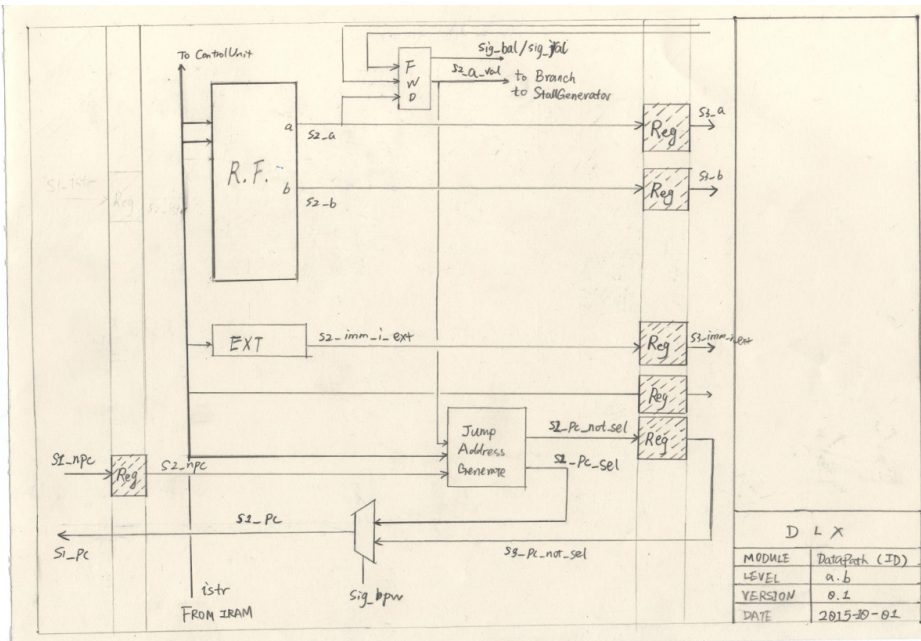 To ControlUnit
sig_bal/sig_jral
F
W
D
s2_a_val
to Branch
to StallGenerator
a
s2_a
R.F.
b
s2_b
Reg
s3_a
Reg
s3_b
Reg
EXT
s2_imm_i_ext
Reg
s3_imm_i_ext
Reg
Jump
Address
Generate
s2_pc_not_sel
Reg
s2_pc_sel
s1_npc
Reg
s2_npc
s2_PC
s1_pc
s3_pc_not_sel
sig_bpw
istr
FROM IRAM
DLX
MODULE DataPath (ID)
LEVEL a.b
VERSION 0.1
DATE 2015-10-01